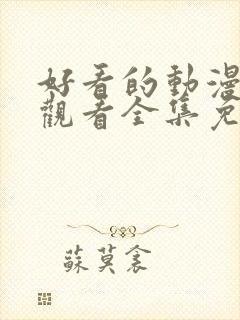 好看的動漫
觀看全集免
蘇莫衾